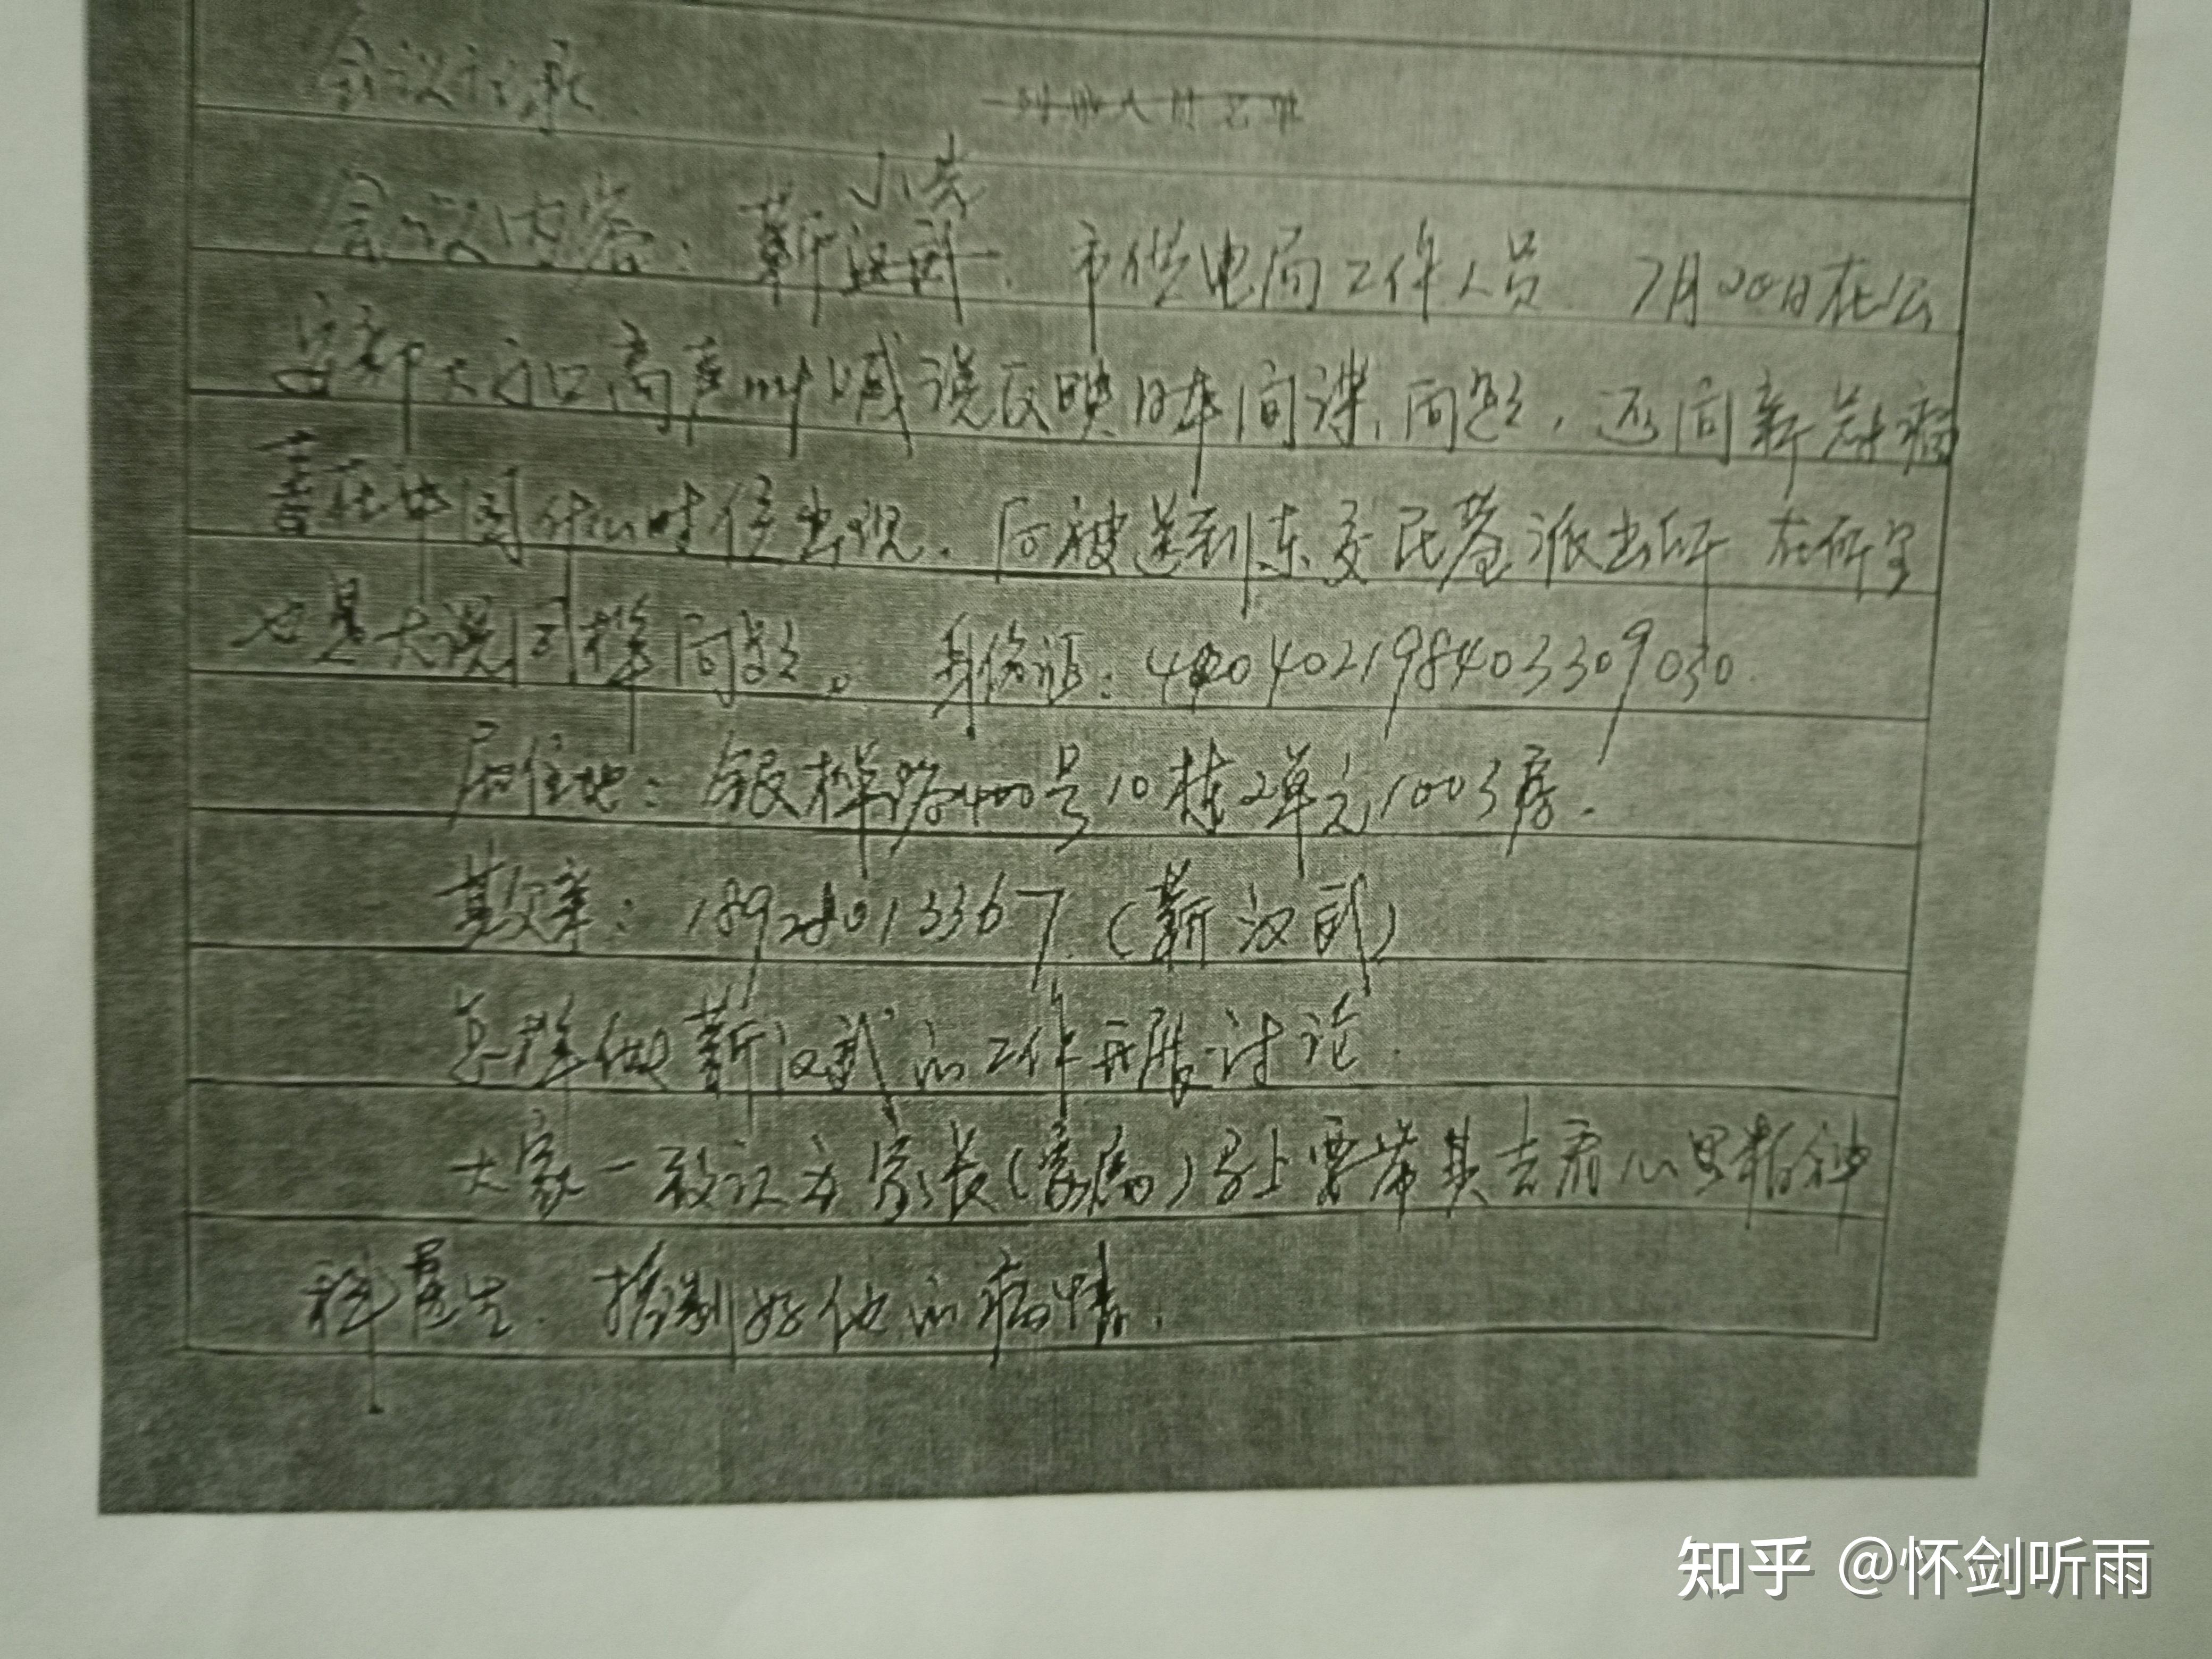 会议记录
会议内容：靳小岚 市供电局工作人员 7月20日在公
安部大门口高声叫喊说反映日本间谍问题，还问新冠病
毒在中国什么时候出现。后被送到东交民巷派出所 在所里
也是大说同样问题。 身份证：
居住地：银桦路400号10栋2单元1003房.
其父亲： (靳汉武)
怎样做靳汉武的工作开展讨论.
大家一致认为家长(家属)马上要带其去看心里精神
科医生. 控制好他的病情.
知乎 @怀剑听雨